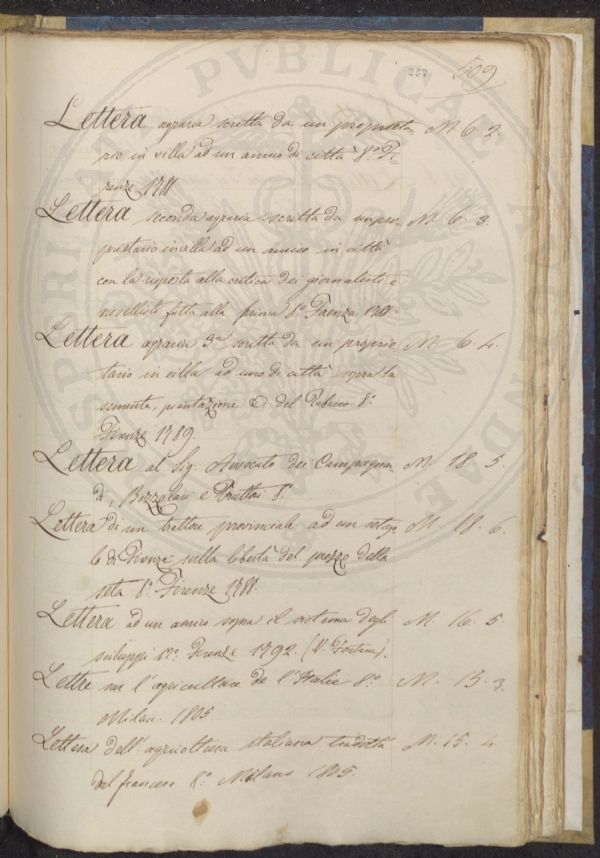 257 509
Lettera agraria scritta da un proprieta M. 6. 2.
rio in villa ad un amico di città 8.° Fi-
renze 1788
Lettera seconda agraria scritta da un pro- M. 6. 3.
prietario in villa ad un amico in città
con la risposta alla critica dei giornalisti e
novellisti fatta alla prima 8.° Faenza 1788.
Lettera agraria 3.a scritta da un proprie M. 6. 4.
tario in villa ad uno di città sopra la
sementa, piantazione &. del Tabacco 8.°
Firenze 1789.
Lettera al Sig. Avvocato dei Campagna M. 18. 5.
di, Bozzolari e Trattori 8.°
Lettera di un trattore provinciale ad un M. 18. 6.
di Firenze sulla libertà del prezzo della
seta 8.° Firenze 1788.
Lettera ad un amico sopra il sistema degli M. 16. 5
sviluppi 12.° Firenze 1792. (V. Fontana).
Lettre sur l'agriculture de l'Italie 8.° M. 15. 3.
Milan. 1805
Lettera dell'agricoltura italiana tradotta M. 15. 4
dal francese 8.° Milano 1805.